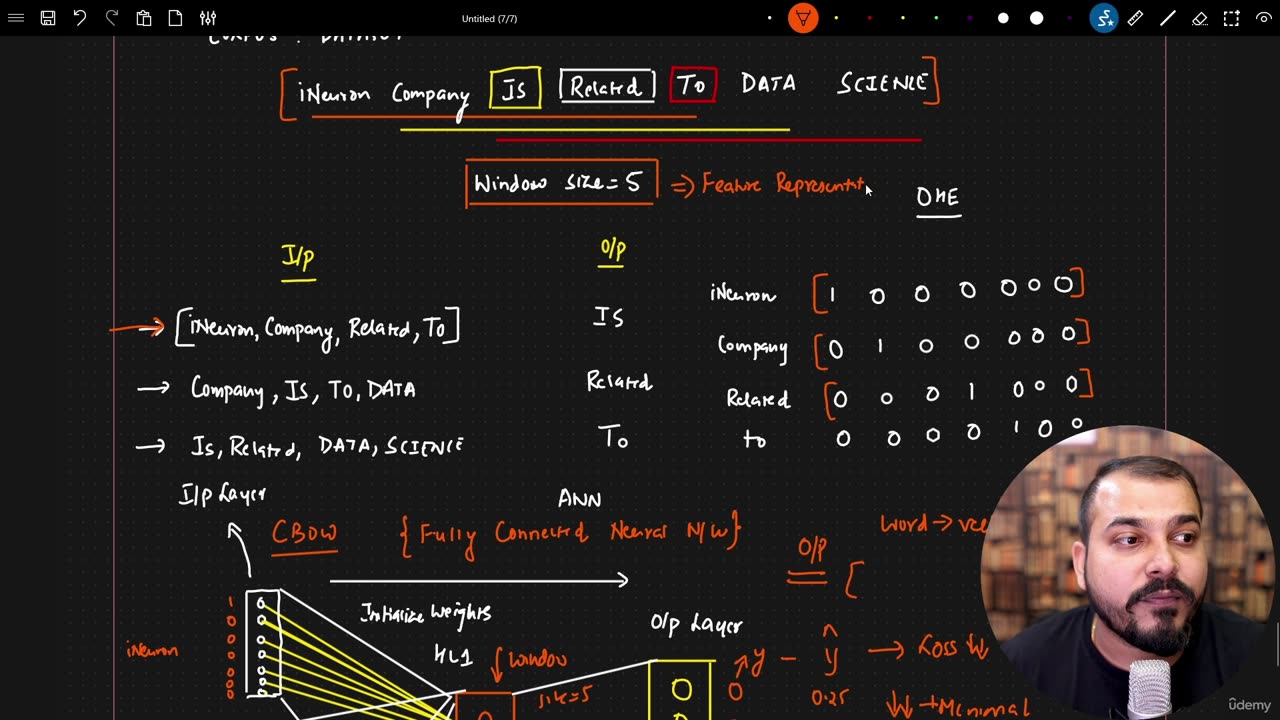 Untitled (7/7)
CORPUS : DATASET
[iNeuron Company IS Related To DATA SCIENCE]
Window size = 5 => Feature Representat
OHE
I/p O/p
iNeuron [1 0 0 0 0 0 0]
→ [iNeuron, Company, Related, To] IS
Company [0 1 0 0 0 0 0]
→ Company, IS, TO, DATA Related
Related [0 0 0 1 0 0 0]
→ Is, Related, DATA, SCIENCE To
to 0 0 0 0 1 0 0
I/p Layer ANN
CBOW { Fully Connected Neural N/W} O/P [
Word → vec
Initialize Weights
O/p Layer
iNeuron 1 0 0 0 0 0 0
HL1 Window size=5
y - ŷ → Loss ↓↓
0 0.25 ↓↓ → Minimal
ûdemy